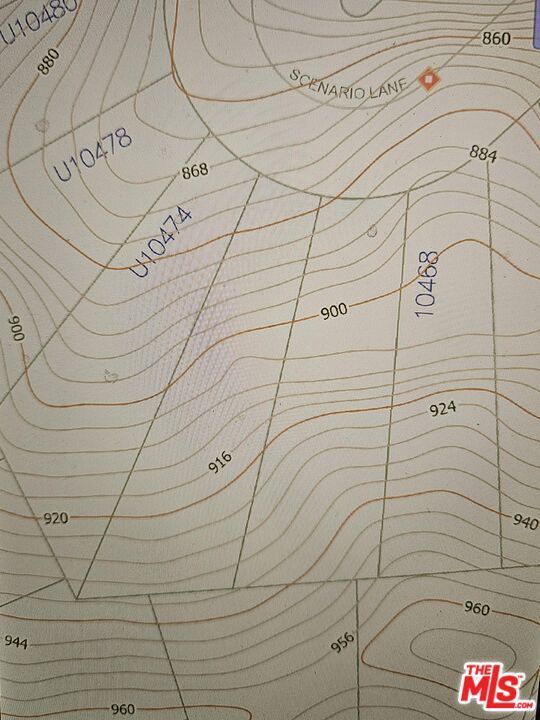 U10480
880
860
SCENARIO LANE
U10478
868
884
U10474
10468
900
900
924
916
920
940
944
956
960
960
THE
MLS
.COM